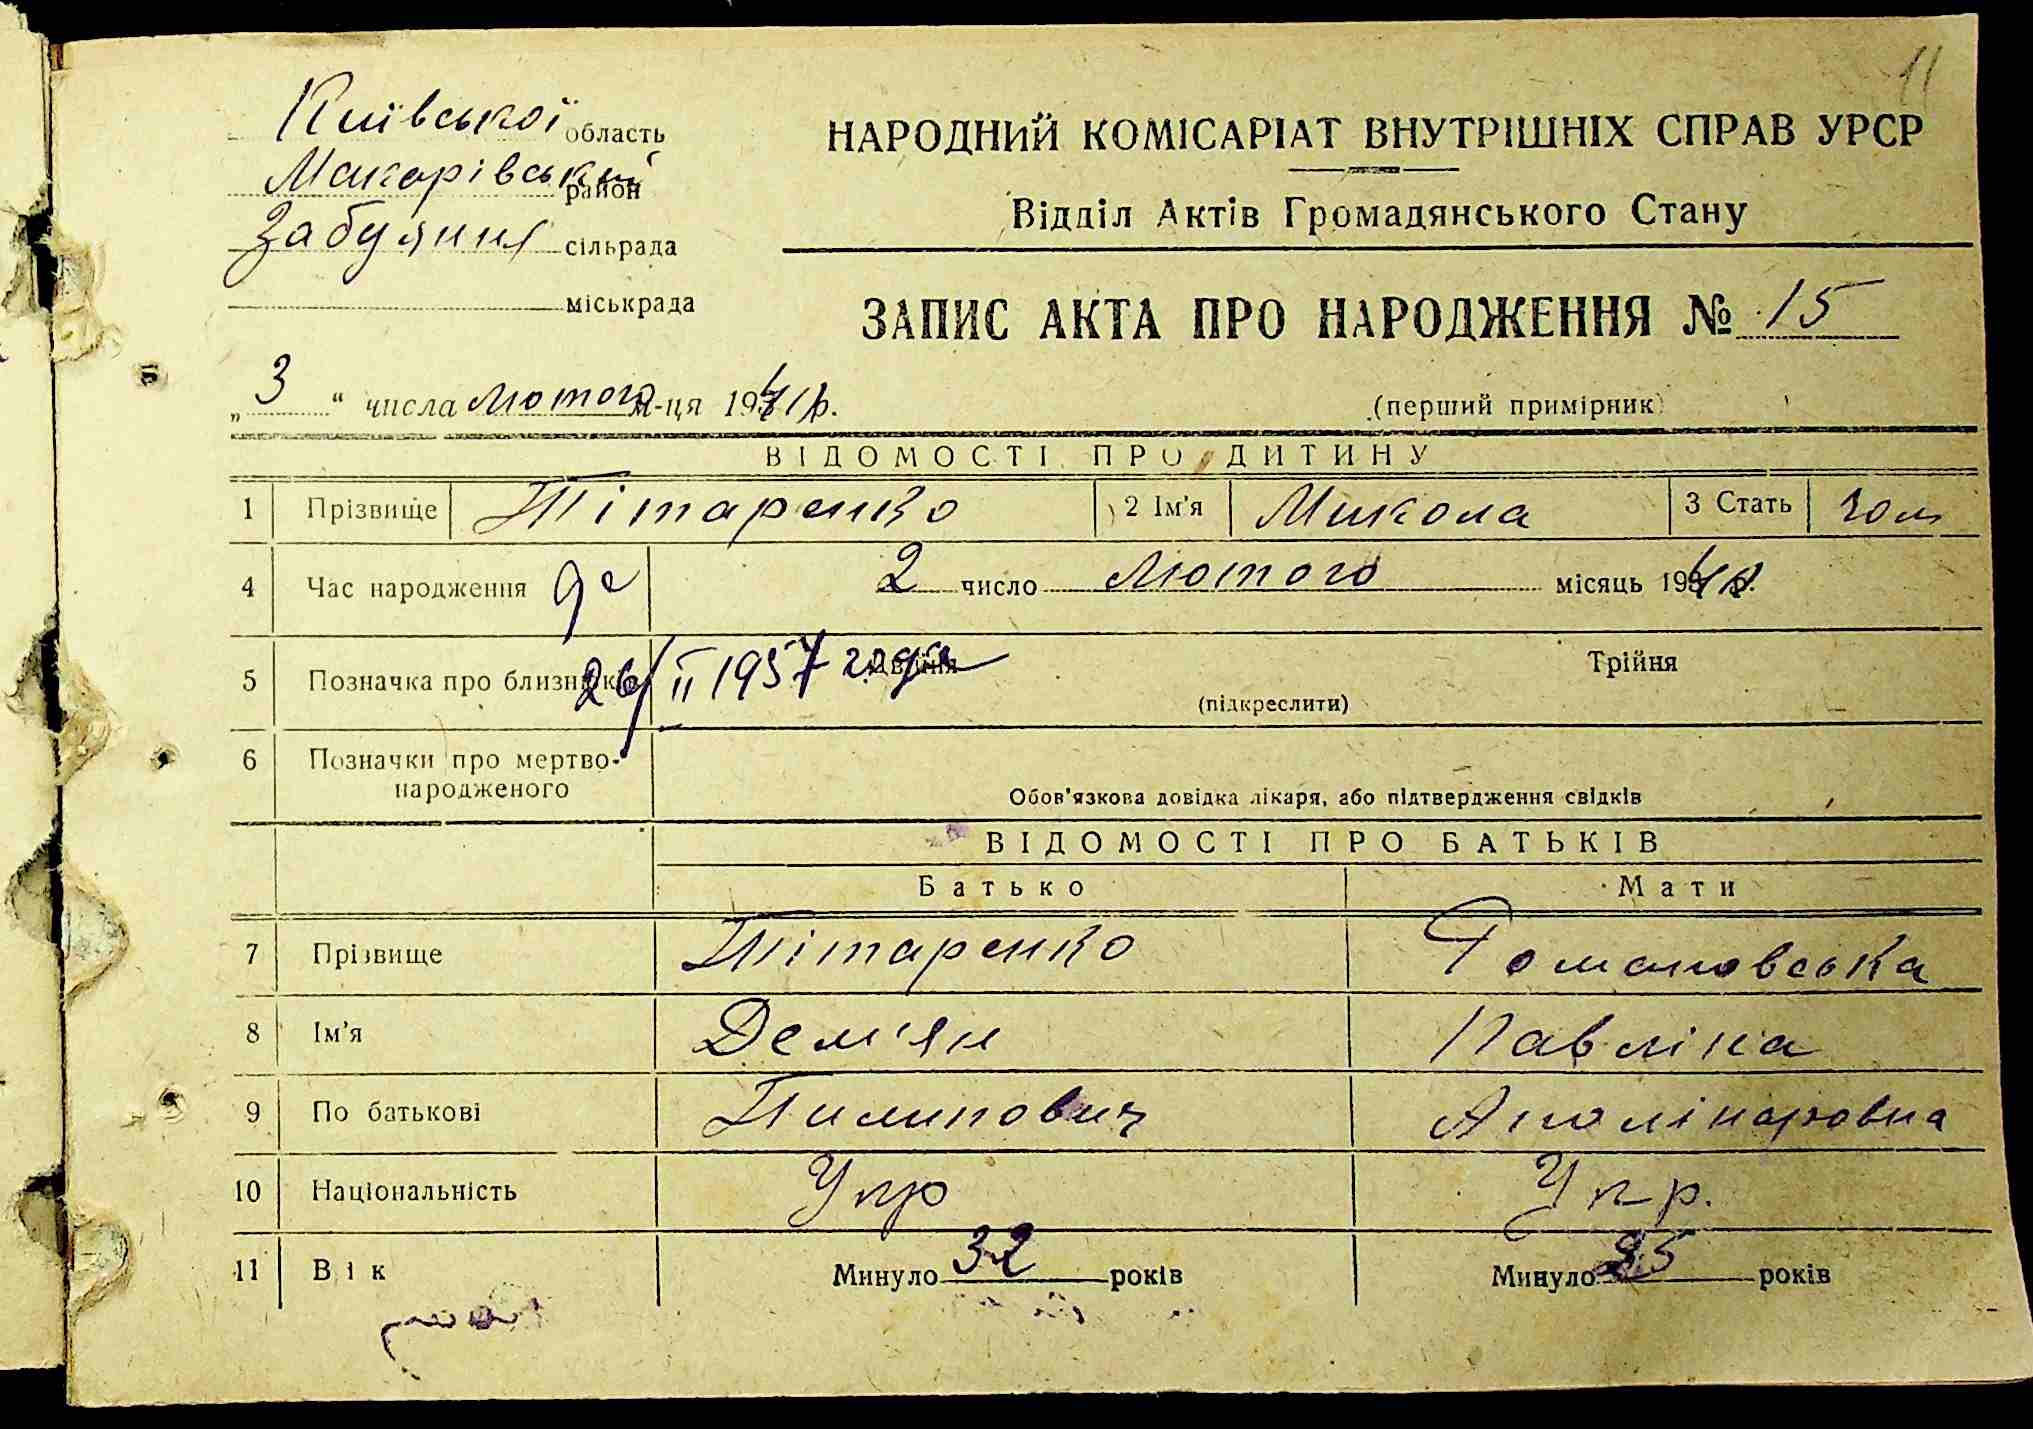 11
Київської область
Макарівський район
Забуяння сільрада
міськрада
НАРОДНИЙ КОМІСАРІАТ ВНУТРІШНІХ СПРАВ УРСР
Відділ Актів Громадянського Стану
ЗАПИС АКТА ПРО НАРОДЖЕННЯ № 15
„3“ числа Лютого м-ця 1941 р.
(перший примірник)
ВІДОМОСТІ ПРО ДИТИНУ
1 Прізвище Тітаренко 2 Ім'я Микола 3 Стать чол
4 Час народження 2 число Лютого місяць 1941 р.
5 Позначка про близнюків Двійня Трійня
26/II 1957 года
(підкреслити)
6 Позначки про мертво-
народженого
Обов'язкова довідка лікаря, або підтвердження свідків
ВІДОМОСТІ ПРО БАТЬКІВ
Батько Мати
7 Прізвище Тітаренко Романовська
8 Ім'я Дем'ян Павліна
9 По батькові Пилипович Аполінаровна
10 Національність Укр Укр.
11 Вік Минуло 32 років Минуло 35 років